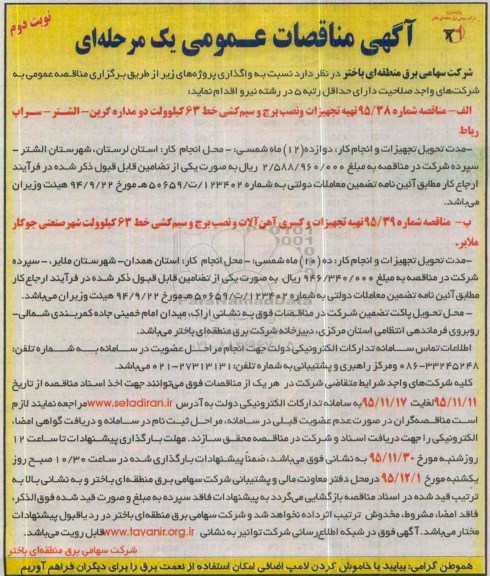 نوبت دوم
آگهی مناقصات عمومی یک مرحله‌ای
شرکت سهامی برق منطقه‌ای باختر در نظر دارد نسبت به واگذاری پروژه‌های زیر از طریق برگزاری مناقصه عمومی به
شرکت‌های واجد صلاحیت دارای حداقل رتبه ۵ در رشته نیرو اقدام نماید:
الف- مناقصه شماره ۹۵/۳۸ تهیه تجهیزات ونصب برج و سیم‌کشی خط ۶۳ کیلوولت دو مداره کرین- الشتر- سراب
رباط
-مدت تحویل تجهیزات و انجام کار: دوازده(۱۲) ماه شمسی: - محل انجام کار: استان لرستان، شهرستان الشتر -
سپرده شرکت در مناقصه به مبلغ ۲/۵۸۸/۹۶۰/۰۰۰ ریال به صورت یکی از تضامین قابل قبول ذکر شده در فرآیند
ارجاع کار مطابق آئین نامه تضمین معاملات دولتی به شماره ۱۲۳۴۰۲/ت۵۰۶۵۹هـ مورخ ۹۴/۹/۲۲ هیئت وزیران
می‌باشد.
ب- مناقصه شماره ۹۵/۳۹ تهیه تجهیزات و کسری آهن‌آلات و نصب برج و سیم‌کشی خط ۶۳ کیلوولت شهر صنعتی جوکار
ملایر.
-مدت تحویل تجهیزات و انجام کار: ده (۱۰) ماه شمسی: - محل انجام کار: استان همدان- شهرستان ملایر، - سپرده
شرکت در مناقصه به مبلغ ۹۴۶/۳۴۰/۰۰۰ ریال به صورت یکی از تضامین قابل قبول ذکر شده در فرآیند ارجاع کار
مطابق آئین نامه تضمین معاملات دولتی به شماره ۱۲۳۴۰۲/ت۵۰۶۵۹هـ مورخ ۹۴/۹/۲۲ هیئت وزیران می‌باشد.
- محل تحویل پاکت تضمین شرکت در مناقصات فوق به نشانی اراک، میدان امام خمینی جاده کمربندی شمالی-
روبروی فرماندهی انتظامی استان مرکزی، دبیرخانه شرکت برق منطقه‌ای باختر می‌باشد.
اطلاعات تماس سامانه تدارکات الکترونیکی دولت جهت انجام مراحل عضویت در سامانه به شماره تلفن:
۳۳۲۴۵۲۴۸-۰۸۶ ومرکز راهبری و پشتیبانی به شماره تلفن: ۲۷۳۱۳۱۳۱-۰۲۱ می‌باشد.
کلیه شرکت‌های واجد شرایط متقاضی شرکت در هر یک از مناقصات فوق می‌توانند جهت اخذ اسناد مناقصه از تاریخ
۹۵/۱۱/۱۱ لغایت ۹۵/۱۱/۱۷ به سامانه تدارکات الکترونیکی دولت به آدرس www.setadiran.ir مراجعه نمایند لازم
است مناقصه‌گران در صورت عدم عضویت قبلی در سامانه، مراحل ثبت نام در سامانه و دریافت گواهی امضاء
الکترونیکی را جهت دریافت اسناد و شرکت در مناقصه محقق سازند. مهلت بارگذاری پیشنهادات تا ساعت ۱۲
روز شنبه مورخ ۹۵/۱۱/۳۰ به نشانی فوق می‌باشد، ضمناً پیشنهادات بارگذاری شده در ساعت ۱۰/۳۰ صبح روز
یکشنبه مورخ ۹۵/۱۲/۱ در محل دفتر معاونت مالی و پشتیبانی شرکت سهامی برق منطقه‌ای باختر و به نشانی بالا به
ترتیب قید شده در اسناد مناقصه بازگشایی می‌گردد به پیشنهادات فاقد سپرده به مبلغ و صورت قید شده فوق‌الذکر،
فاقد امضا، مشروط، مخدوش ترتیب اثر داده نخواهد شد و شرکت سهامی برق منطقه‌ای باختر در رد یا قبول پیشنهادات
مختار می‌باشد. آگهی فوق در شبکه اطلاع‌رسانی شرکت توانیر به نشانی www.tavanir.org.ir قابل رویت می‌باشد.
شرکت سهامی برق منطقه‌ای باختر
هموطن گرامی: بیایید با خاموش کردن لامپ اضافی امکان استفاده از نعمت برق را برای دیگران فراهم آوریم